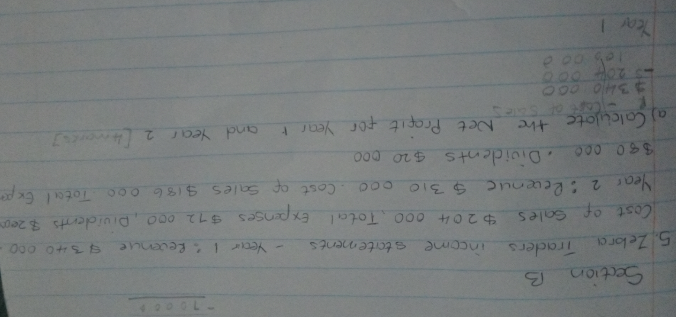 -70000
Section B
5. Zebra Traders income statements - Year 1: Revenue $340 000
Cost of sales $204 000, Total Expenses $72 000, Dividents $zero
Year 2: Revenue $310 000. Cost of sales $186 000 Total Expen
$80 000. Dividents $20 000
a) Calculate the Net Profit for Year 1 and Year 2 [4 marks]
R - Cost of sales
$340 000
- 204 000
Year 1